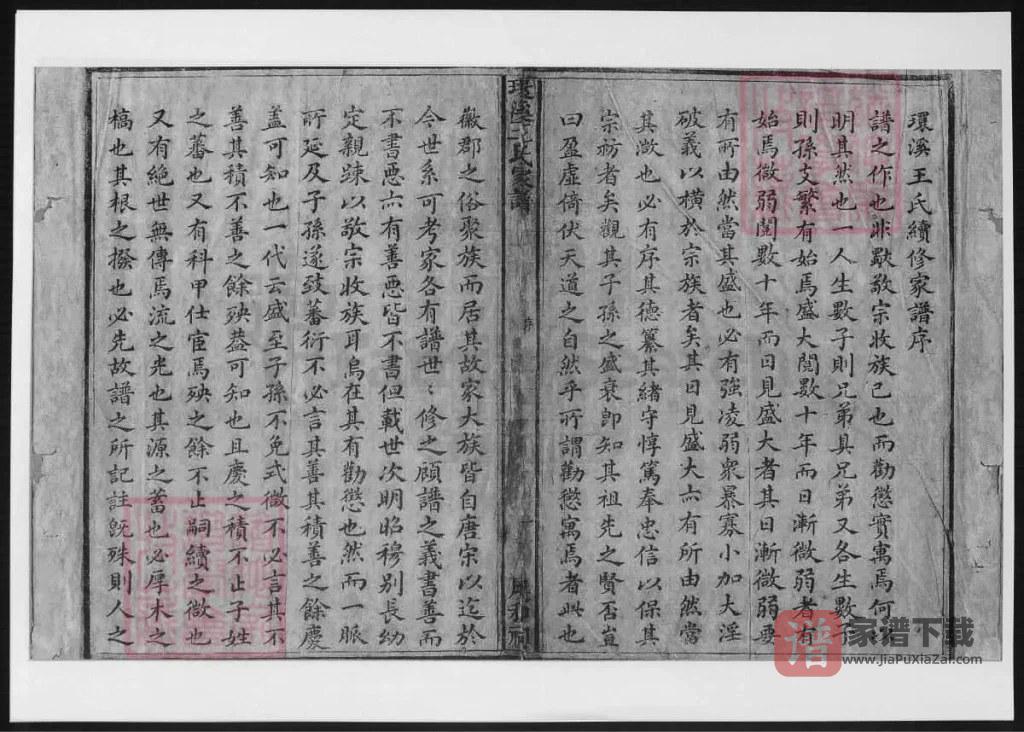 環溪王氏續修家譜序
譜之作也非歟敬宗收族已也而勸懲實寓焉何
明其然也一人生數子則兄弟具兄弟又各生數子
則孫支繁有始焉盛大閱數十年而日漸微弱者有
始焉微弱閱數十年而日見盛大者其日漸微弱要
有所由然當其盛也必有強凌弱衆暴寡小加大淫
破義以橫於宗族者矣其日見盛大亦有所由然當
其微也必有序其德纂其緒守惇篤奉忠信以保其
宗祊者矣觀其子孫之盛衰卽知其祖先之賢否豈
曰盈虛倚伏天道之自然乎所謂勸懲寓焉者此也
環溪王氏家譜
徽郡之俗聚族而居其故家大族皆自唐宋以迄於
今世系可考家各有譜世〻修之顧譜之義書善而
不書惡亦有善惡皆不書但載世次明昭穆別長幼
定親踈以敬宗收族耳烏在其有勸懲也然而一脈
所延及子孫遂致蕃衍不必言其善其積善之餘慶
盖可知也一代云盛至子孫不免式微不必言其不
善其積不善之餘殃葢可知也且慶之積不止子姓
之蕃也又有科甲仕宦焉殃之餘不止嗣續之微也
又有絕世無傳焉流之光也其源之蓄也必厚木之
槁也其根之撥也必先故譜之所記註旣殊則人之
家谱下载
www.JiaPuXiaZai.com